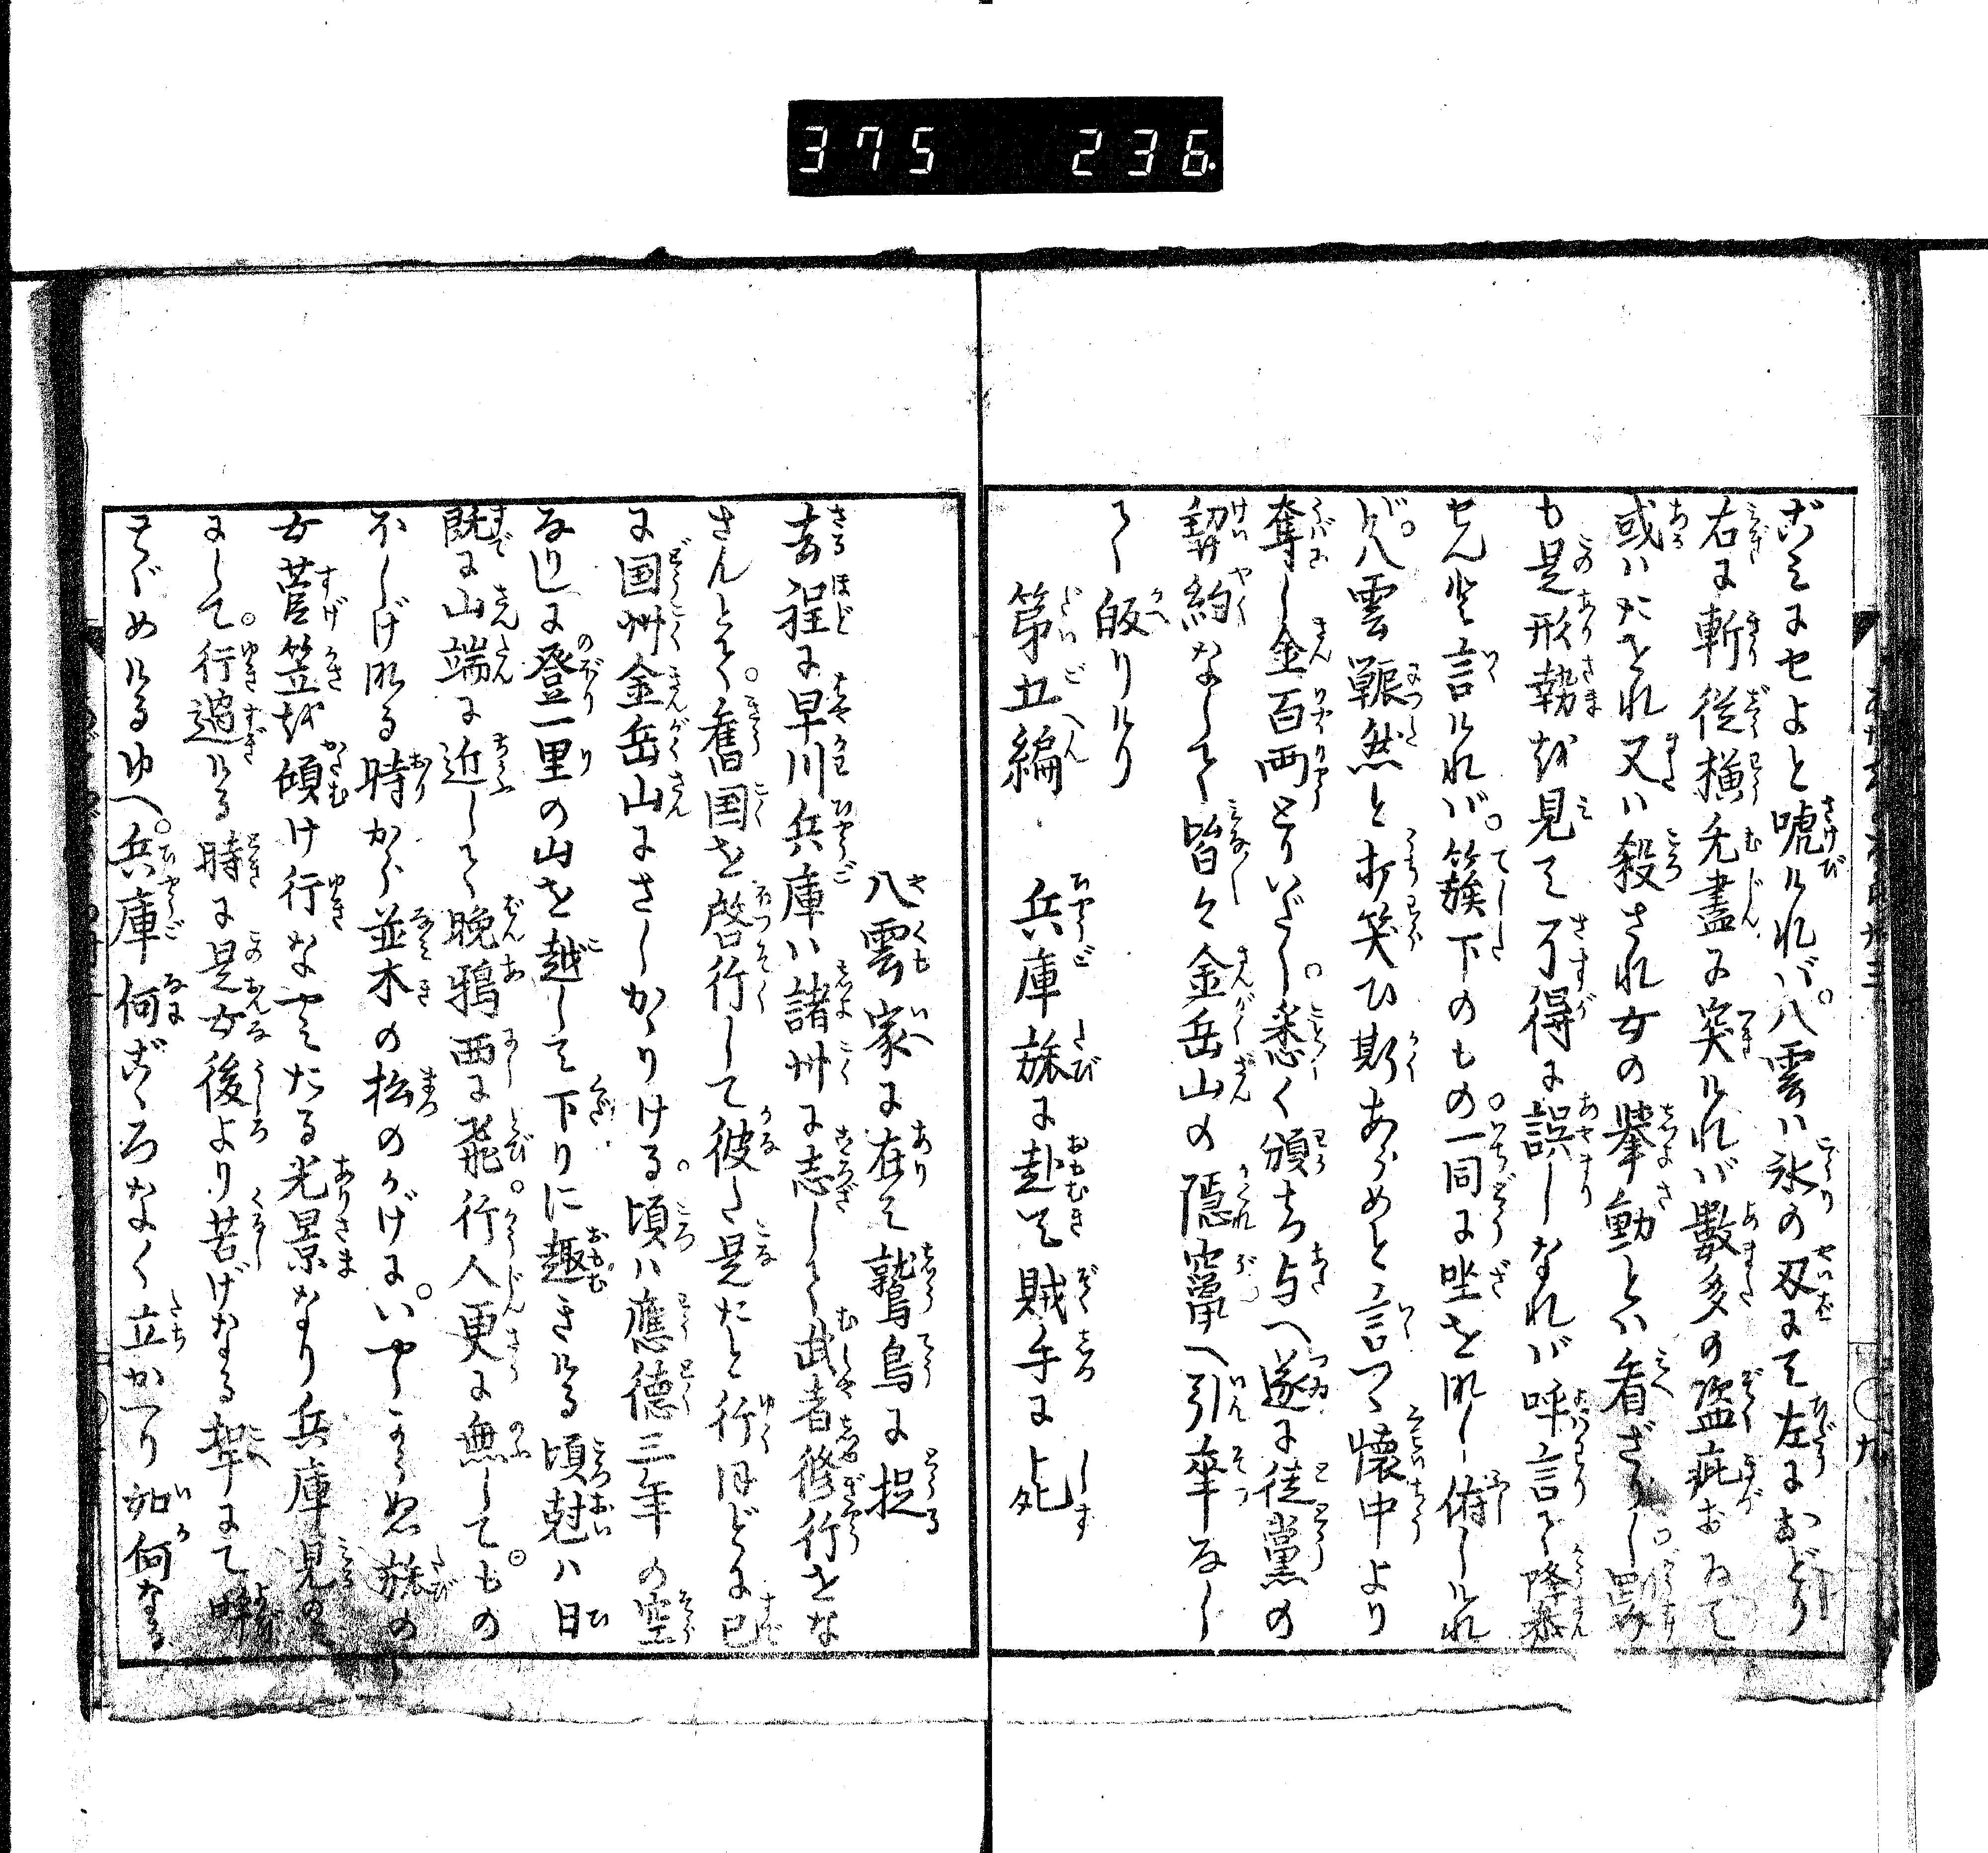 375 236.
ごミにせよと唬けれバ。八雲ハ氷の刄にて左におどり
右に斬従横无盡に突けれバ數多の盗疵おゐて
或ハたをれ又ハ殺され女の挙動とハ看ざりし
も是形勢を見て了得に誤しなれバ呼言て降参
せんと言けれバ。簇下のもの一同に坐を服し俯しけれ
ば。八雲囅然と打笑ひ斯あらめと言つゝ懐中より
奪し金百両とりいだし。悉く頒ち与へ遂に徒黨の
契約なして皆々金岳山の隠竄へ引率なし
て皈りけり
第五編 兵庫旅に赴て賊手に死
八雲家に在て鷲鳥に捉
去程に早川兵庫ハ諸州に志して武者修行をな
さんとて。舊国を啓行して彼に是たと行ほどに已
に国州金岳山にさしかゝりける。頃ハ應德三年の空
なりしに登一里の山を越して下りに趣きける頃尅ハ日
既に山端に近して晩鴉西に飛。行人更に無してもの
さみしげなる時から並木の松のかげに。いやしからぬ旅の
女菅笠を傾け行なやミたる光景なり兵庫見の
にして。行過ける時に是女後より苦げなる声にて呼
とゞめけるゆへ。兵庫何ごゝろなく立かへり如何なる